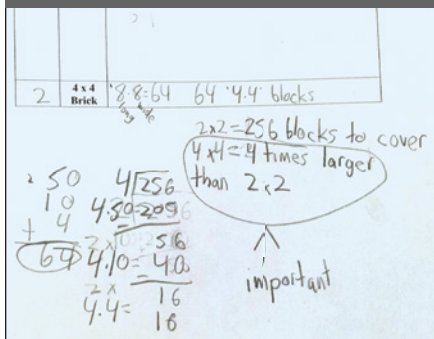 2 4 x 4 Brick 8·8=64 64 4·4 blocks
long wide
2x2=256 blocks to cover
4x4=4 times larger
than 2x2
important
50
10
+ 4
64
4 256
4·50=
56
4·10= 40
16
4·4= 16